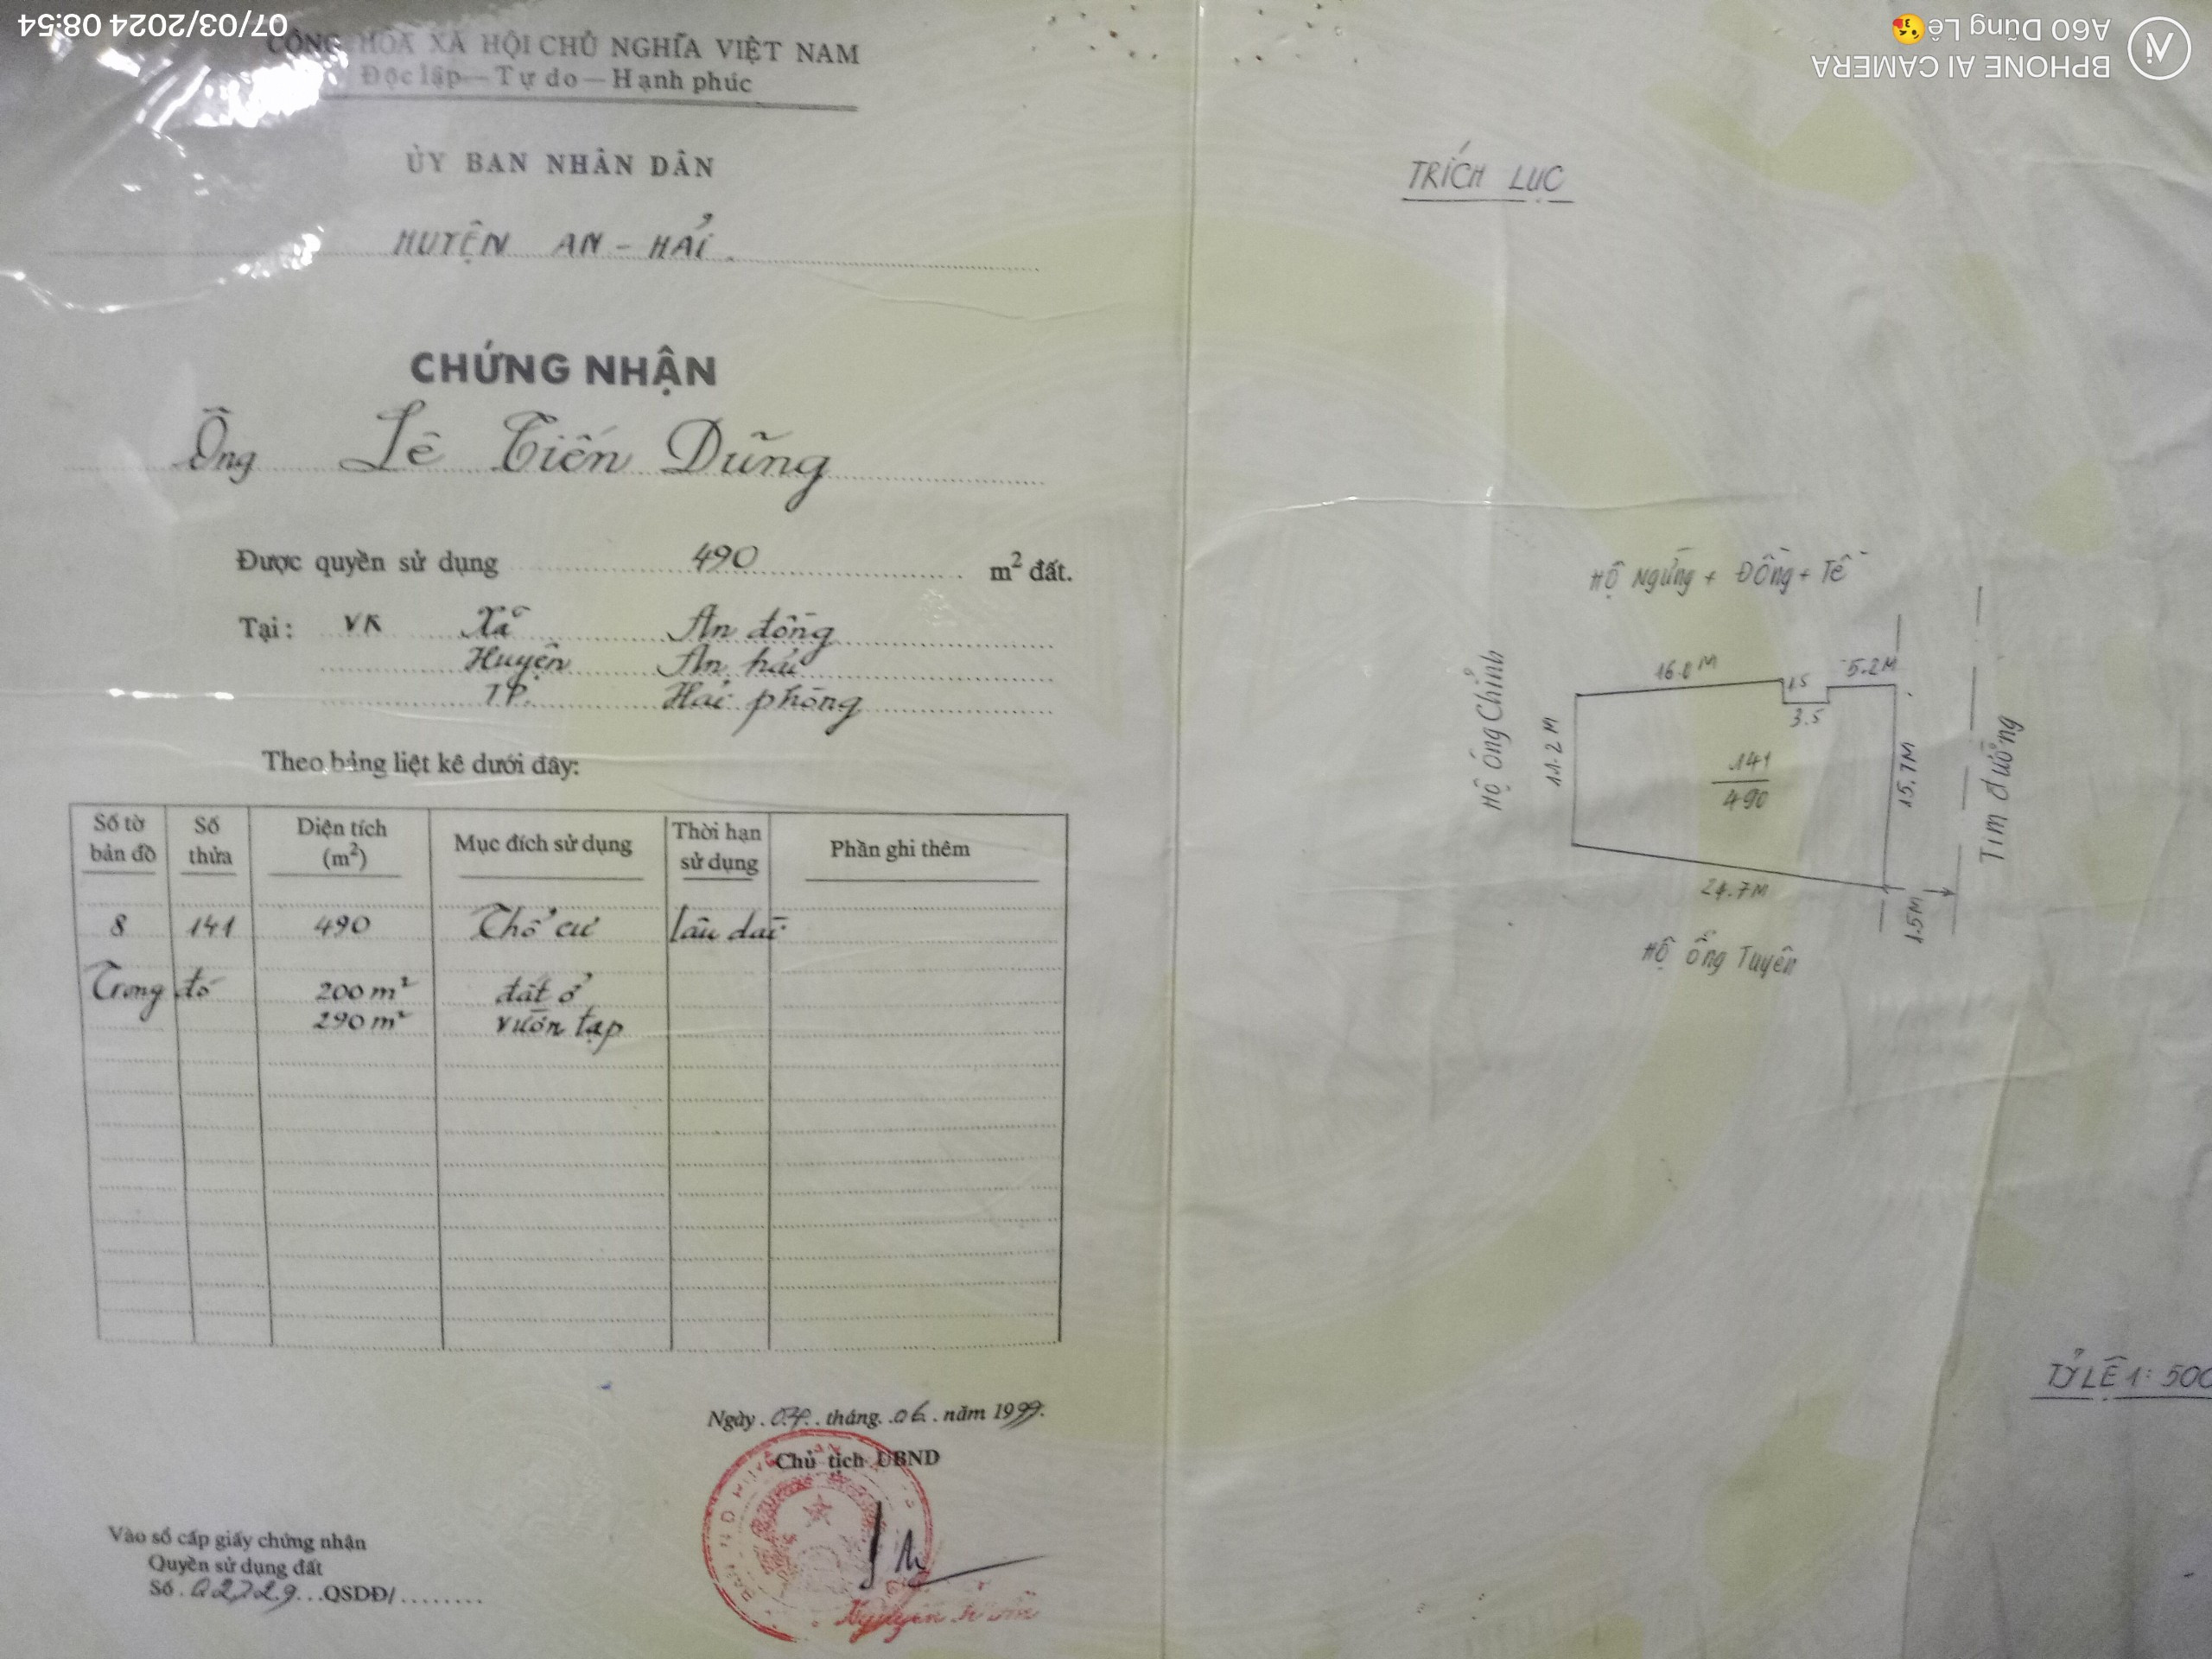 07/03/2024 08:54
BPHONE AI CAMERA
A60 Dũng Lê😘
CỘNG HÒA XÃ HỘI CHỦ NGHĨA VIỆT NAM
Độc lập — Tự do — Hạnh phúc
ỦY BAN NHÂN DÂN
HUYỆN AN - HẢI.
CHỨNG NHẬN
Ông Lê Tiến Dũng
Được quyền sử dụng 490 m² đất.
Tại: VK Xã An đồng
Huyện An hải
TP. Hải phòng
Theo bảng liệt kê dưới đây:
Số tờ bản đồ Số thửa Diện tích (m²) Mục đích sử dụng Thời hạn sử dụng Phần ghi thêm
8 141 490 Thổ cư lâu dài
Trong đó 200 m² đất ở
290 m² vườn tạp
Ngày 04 tháng 06 năm 1999.
Chủ tịch UBND
Vào sổ cấp giấy chứng nhận
Quyền sử dụng đất
Số 02729 QSDĐ/
TRÍCH LỤC
HỘ NGỪNG + ĐỒNG + TỀ
16.0 M
1.5
3.5
5.2 M
HỘ ÔNG CHỈNH
11.2 M
141
490
15.7 M
TIM ĐƯỜNG
24.7 M
1.5 M
HỘ ÔNG TUYÊN
TỶ LỆ 1: 500